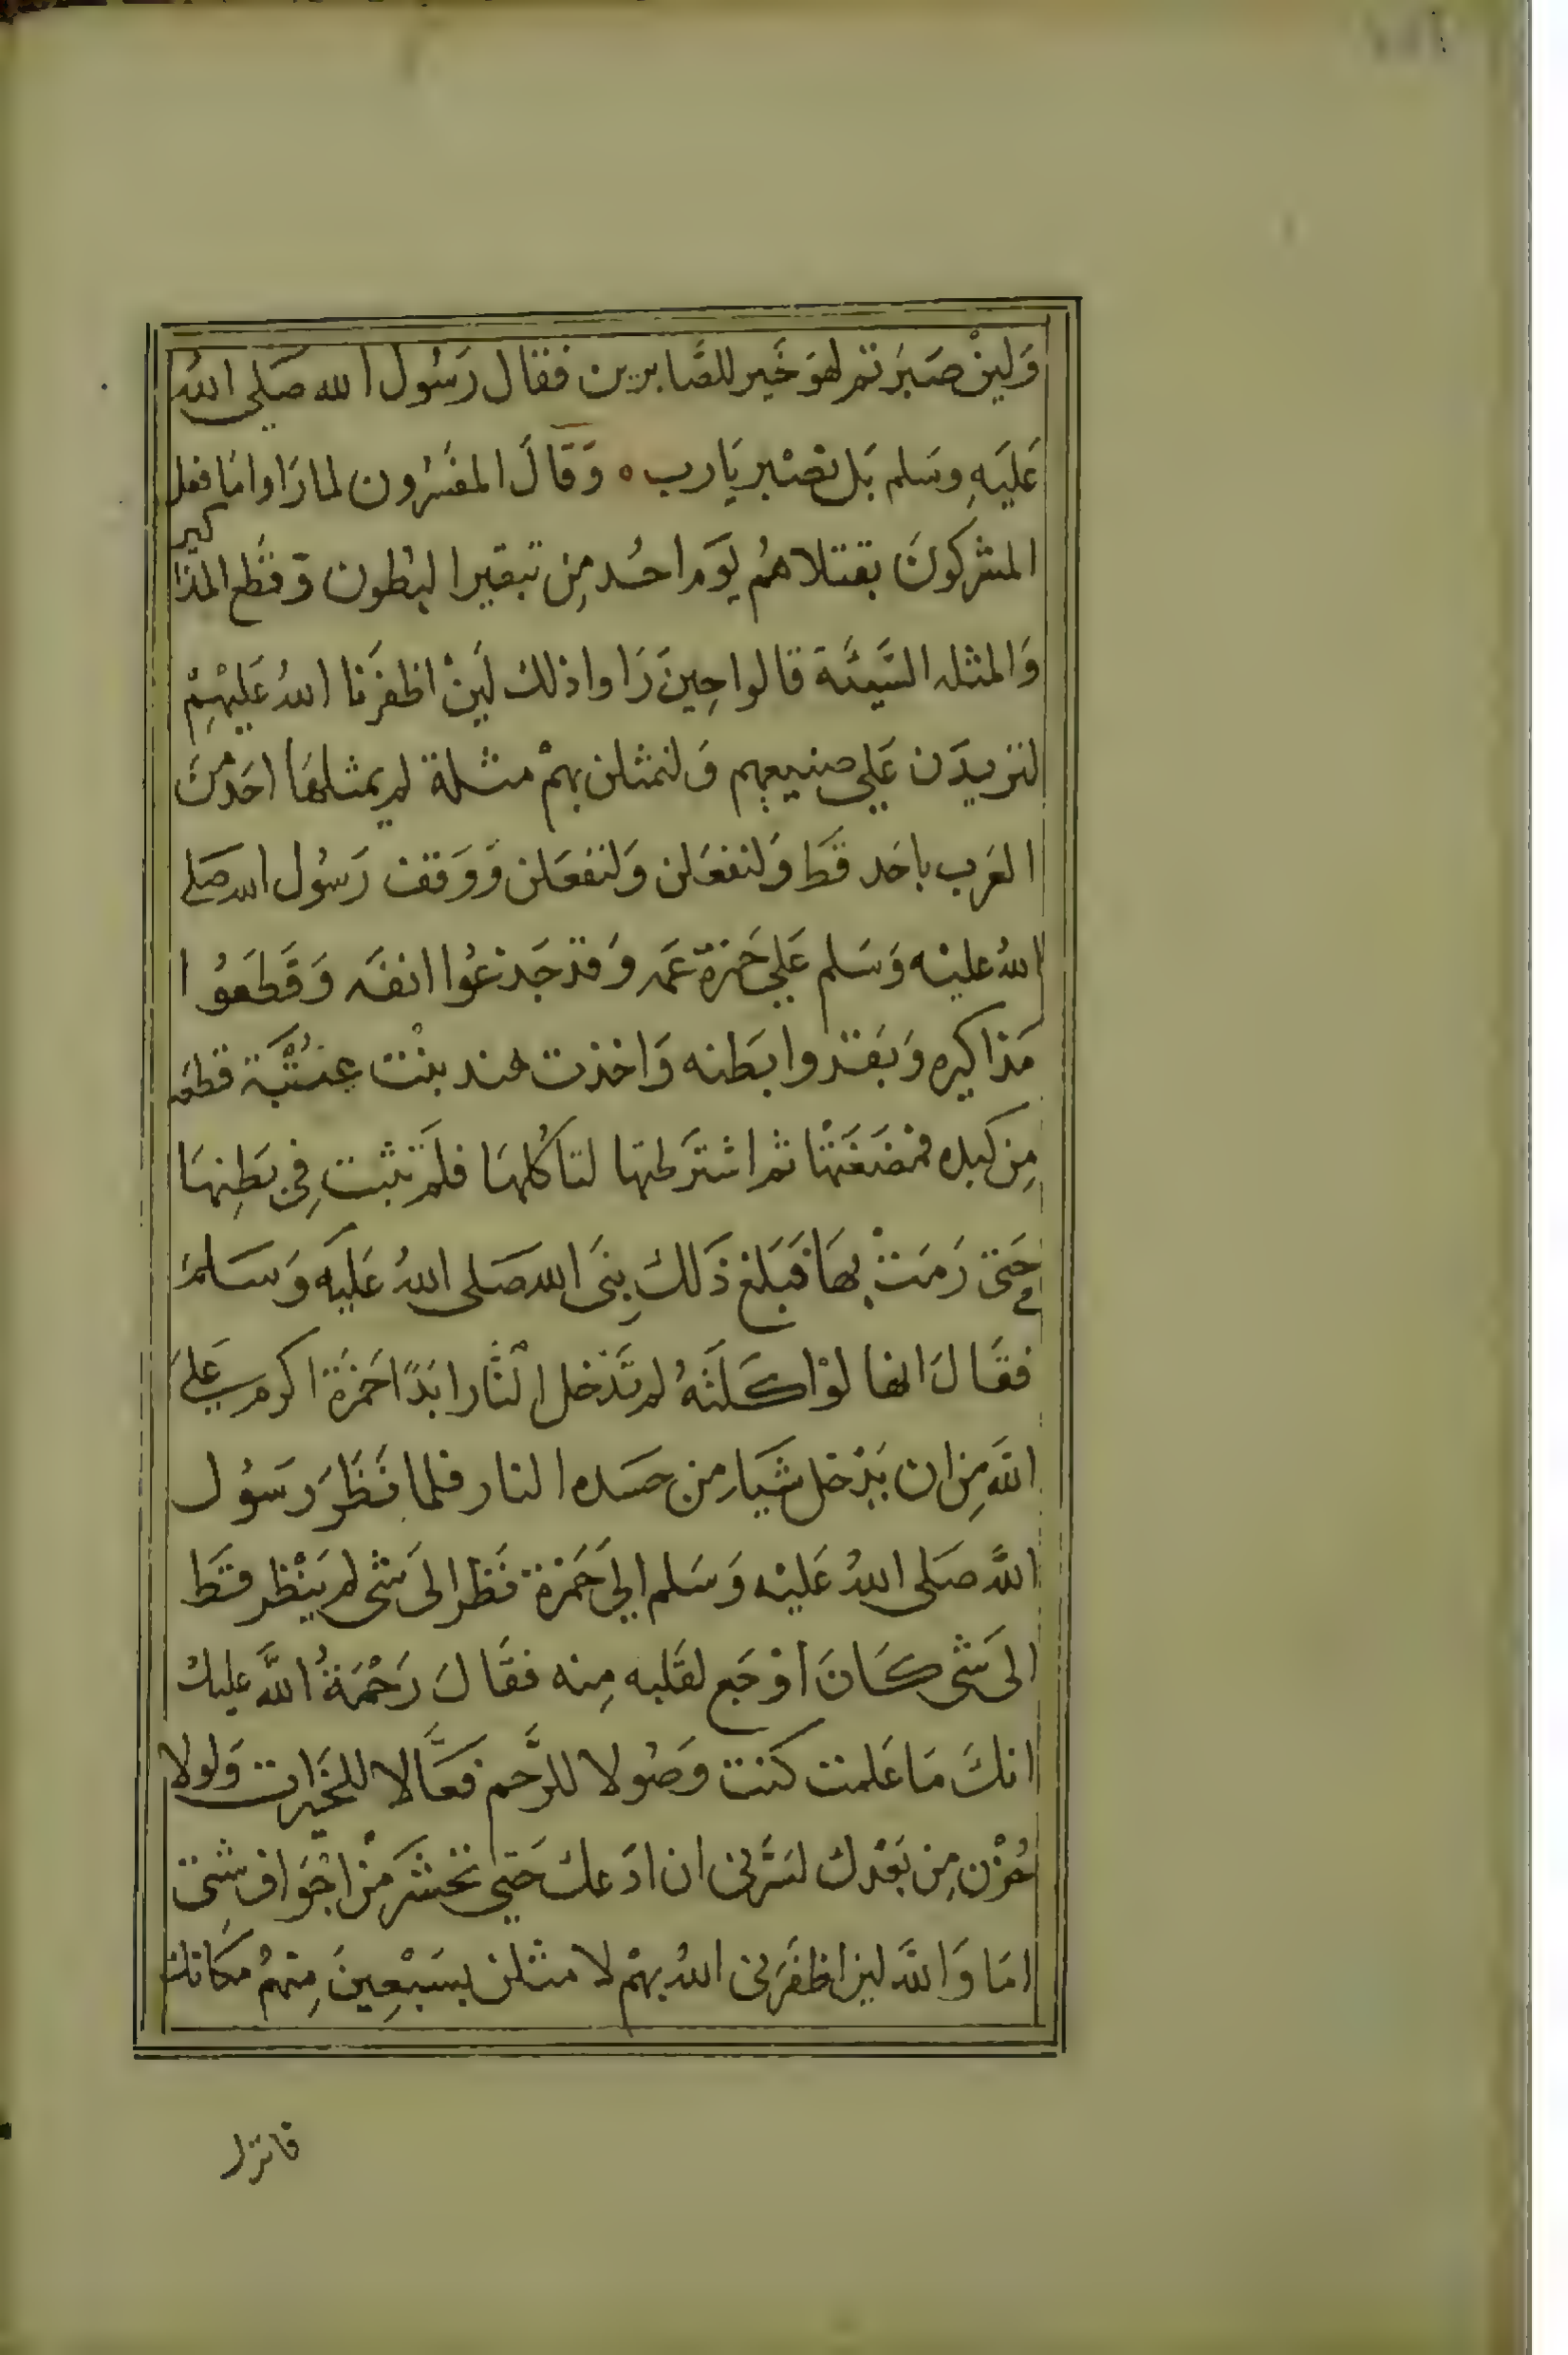 وَلَينْ صَبَرتم لهوَ خَير للصَّابرين فقال رَسُول الله صَلي اللهُ
عَلَيَهِ وسَلم بَل نصْبر يَارب ه وَقالَ المفسّرون لما رَاوا مَا فعل
المشركونَ بقتلاهمُ يَوَم احُد مِن تبقير البُطون وَقطَع المذاكير
وَالمثله السَّيئَة قالوا حِينَ رَاوا ذلك لَينْ اظفَرنا اللهُ عَليْهِمْ
لنزيدَن عَلي صنيعهم وَلنمثلن بهمْ مثلة لم يمثلهَا احَد منَ
العَرب باحَد قَط وَلنفعَلن وَلنفعَلن وَوَقف رَسُول الله صَلي
اللهُ عليْه وَسَلم عَلي حَمزة عَمه وَقد جَدعُوا انفَه وَقَطَعوُا
مَذاكيره وَبَقروا بَطنه وَاخذت هند بنْت عُتْبَة قطعَه
مِن كبده فمْضَغَتْها ثم اشترَطتها لتاكُلهَا فلم تثبت فِي بَطِنهَا
حَتى رَمَتْ بهَا فَبَلغ ذَلكَ نِبَى الله صَلى اللهُ عَليَه وَسَلمَ
فقَالَ انها لوْ اكَلَتْهُ لم تَدْخل النَّار ابَدًا حَمزَة اكرم عَليَ
اللَّه مِن ان يَدْخل شَيَا من جسَده النار فلما نَظَرَ رَسوُل
اللَّه صَلى اللهُ عَليْه وَسَلم الَي حَمَزة نَظر الى شَى لم يَنْظر قَط
الى شَى كَانَ اوْجَع لقَلبه مِنه فقَالَ رَحْمَةُ اللَّه عليكْ
انكَ مَا عَلمت كنت وَصُولا للرَّحم فَعَّالا للخَيرات وَلولا
حُزْن مِن بَعْدك لسَرَّنى ان ادَعك حَتي تحشَر مِنْ اجْوَاف شتى
امَا وَاللَّه لين اظفَرَنى اللهُ بهمْ لا مثلن بسَبْعِينَ مِنهمُ مَكانك
فانزل